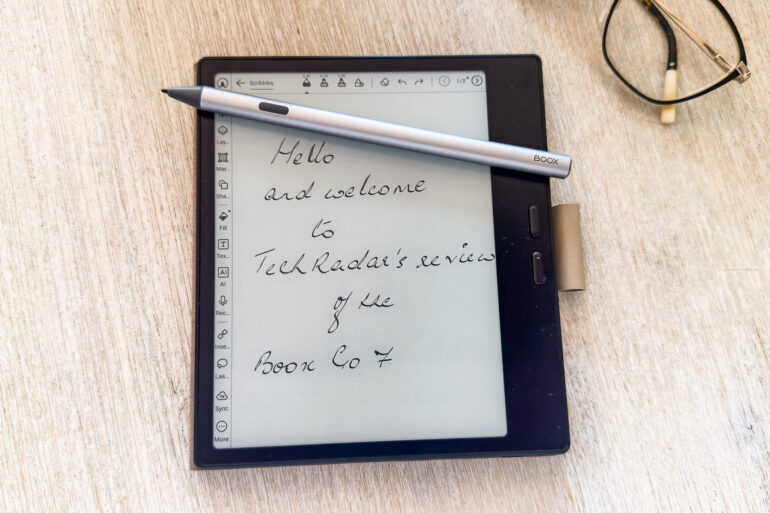 Scribbles 1/3
BOOX
Lay...
Mar...
Sha...
Fill
T
Tex...
AI
AI
Rec...
Inse...
Las...
Sync
More
Hello
and welcome
to
TechRadar's review
of the
Boox Go 7